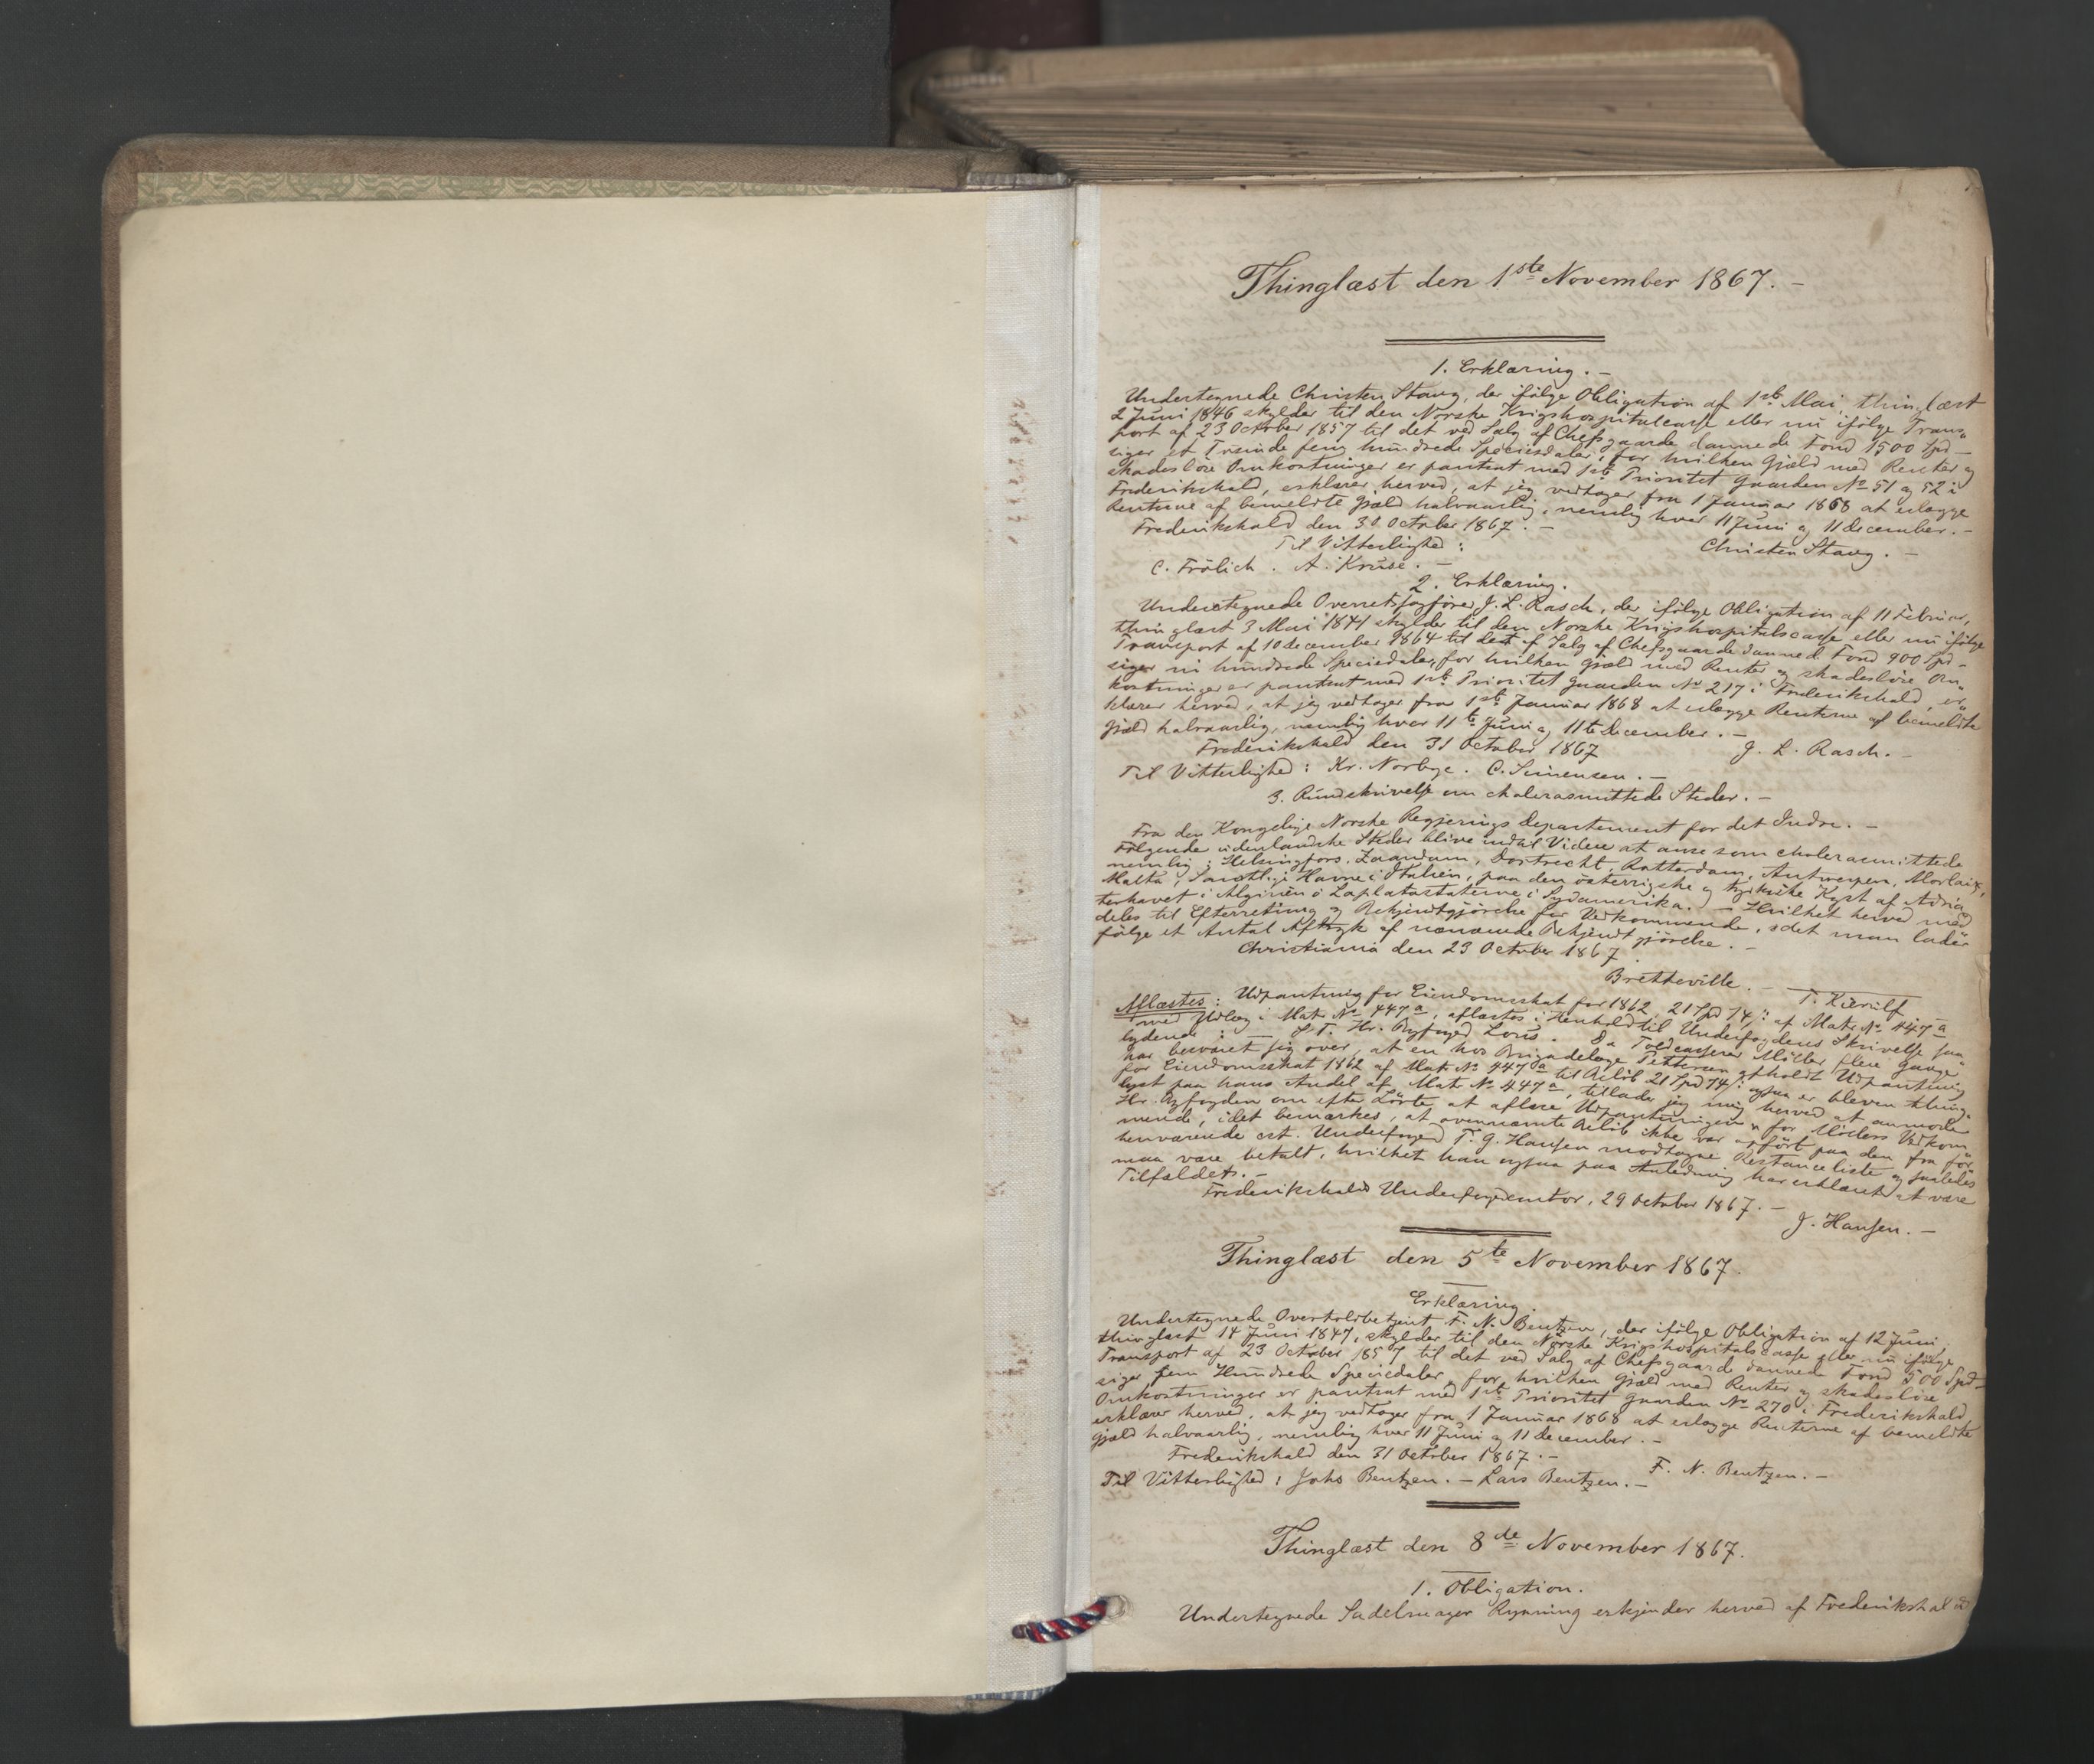 Thinglæst den 1ste November 1867. –
1. Erklæring. –
Undertegnede Christen Stang, der ifölge Obligation af 1ste Mai, thinglæst
2 Juni 1846 skylder til den Norske Krigshospitalcasse eller nu ifölge Trans„
port af 23 October 1857 til det ved Salg af Chefsgaarde dannede Fond 1500 Spd –
siger et Tusinde fem hundrede Speciesdaler, for hvilken Gjæld med Renter og
skadeslöse Omkostninger er pantsat med 1ste Prioritet Gaarden No 51 og 52 i
Frederikshald, erklærer herved, at jeg vedtager fra 1 Januar 1868 at erlægge
Renterne af bemeldte Gjæld halvaarlig, nemlig hver 11 Juni og 11 December. –
Frederikshald den 31 October 1867. –
Til Vitterlighed: Christen Stang. –
C. Frölich. A. Kruse. –
2. Erklæring.
Undertegnede Overretssagförer J. L. Rasch, der ifölge Obligation af 11 Februar,
thinglæst 3 Mai 1841 skylder til den Norske Krigshospitalscasse eller nu ifölge
Transport af 10 December 1864 til det af Salg af Chefsgaarde dannede Fond 900 Spd –
siger ni hundrede Speciedaler, for hvilken Gjæld med Renter og skadeslöse Om„
kostninger er pantsat med 1ste Prioritet Gaarden No 217 i Frederikshald, er„
klærer herved, at jeg vedtager fra 1ste Januar 1868 at erlægge Renterne af bemeldte
Gjæld halvaarlig, nemlig hver 11te Juni og 11te December. –
Frederikshald den 31 October 1867 J. L. Rasch. –
Til Vitterlighed: Kr. Norbye. C. Simensen. –
3. Rundskrivelse om cholerasmittede Steder. –
Fra den Kongelige Norske Regjerings Departement for det Indre. –
Fölgende udenlandske Steder blive indtil Videre at anse som cholerasmittede
nemlig: Helsingfors, Zaandam, Dortrecht, Rotterdam, Antwerpen, Morlaix,
Malta, Samtlige Havne i Italien, paa den österrigske og tyrkiske Kyst af Adria„
terhavet i Algerien o Laplatastaterne i Sydamerika. – Hvilket herved med„
deles til Efterretning og Bekjendtgjörelse for Vedkommende, idet man lader
fölge et Antal Aftryk af nævnte Bekjendtgjörelse. –
Christiania den 23 October 1867.
Bretteville. – T. Kierulf
Aflæstes: Udpantning for Eiendomsskat for 1862, 21 Spd 74 s: af Matr. No 447a
med Udlæg i Matr No 447a, aflæstes i Henhold til Underfogdens Skrivelse saa„
lydende: – S. T. Hr. Byfoged Lous. Da Toldcasserer Möller flere Gange
har besværet sig over, at en hos Brigadelæge Pettersen afholdt Udpantning
for Eiendomsskat 1862 af Matr No 447a til Belöb 21 Spd 74 s: ogsaa er bleven thing„
lyst paa hans Andel af Matr No 447a, tillader jeg mig herved at anmode
Hr. Byfogden om efter Löfte at aflæse Udpantningen for Möllers Vedkom„
mende, idet bemærkes, at ovennævnte Belöb ikke var opfört paa den fra for„
henværende cst. Underfoged T. G. Hansen modtagne Restanceliste og saaledes
maa være betalt, hvilket han ogsaa paa Anledning har erklæret at være
Tilfældet. –
Frederikshalds Underfogedcontor, 29 October 1867. –
J. Hansen. –
Thinglæst den 5te November 1867.
Erklæring.
Undertegnede Overtoldbetjent F. N. Bentzen, der ifölge Obligation af 12 Juni,
thinglæst 14 Juni 1847, skylder til den Norske Krigshospitalscasse eller nu ifölge
Transport af 23 October 1857 til det ved Salg af Chefsgaarde dannede Fond 500 Spd –
siger fem Hundrede Speciedaler, for hvilken Gjæld med Renter og skadeslöse
Omkostninger er pantsat med 1ste Prioritet Gaarden No 270 i Frederikshald,
erklærer herved, at jeg vedtager fra 1 Januar 1868 at erlægge Renterne af bemeldte
Gjæld halvaarlig, nemlig hver 11 Juni og 11 December. –
Frederikshald den 31 October 1867. –
F. N. Bentzen. –
Til Vitterlighed: Johs Bentzen. – Lars Bentzen. –
Thinglæst den 8de November 1867.
1. Obligation.
Undertegnede Sadelmager Rynning erkjender herved af Frederikshald